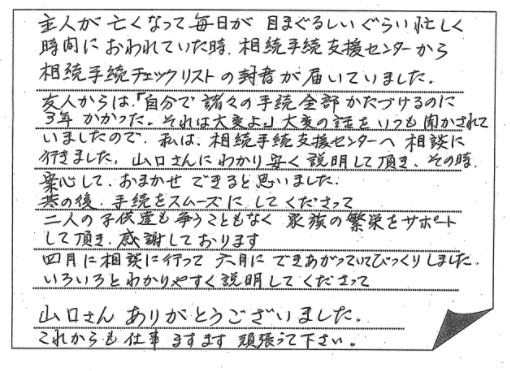 主人が亡くなって毎日が目まぐるしいぐらい忙しく
時間におわれていた時、相続手続支援センターから
相続手続チェックリストの封書が届いていました。
友人からは、「自分で諸々の手続全部かたづけるのに
3年かかった。それは大変よ」大変の話をいつも聞かされて
いましたので、私は、相続手続支援センターへ相談に
行きました。山口さんにわかり安く説明して頂き、その時
安心して、おまかせできると思いました。
其の後、手続をスムーズにしてくださって
二人の子供達も争うこともなく家族の繁栄をサポート
して頂き、感謝しております
四月に相談に行って六月にできあがっていてびっくりしました。
いろいろとわかりやすく説明してくださって
山口さんありがとうございました。
これからも仕事ますます頑張って下さい。